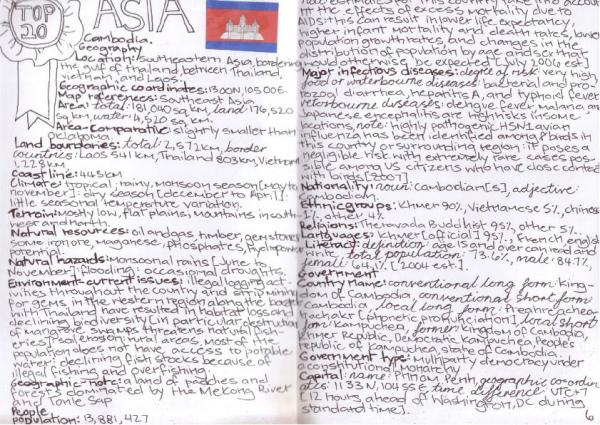 TOP
20
ASIA
Cambodia.
Geography
Location: Southeastern Asia, bordering
the gulf of thailand, between Thailand,
vietnam, and Laos.
Geographic coordinates: 1300N, 105 00E.
Map references: Southeast Asia
Area: total: 181,040 sq km, land: 176,520
sq km, water: 4,520 sq km.
Area-comparative: slightly smaller than
Oclagoma.
Land boundaries: total: 2,572km, border
countries: Laos 541 KM, Thailand 803km, Vietnam
1,228 km
Coastline: 443km
Climate: tropical; rainy, monsoon season [may to
november]; dry season [december to april];
little seasonal temperature variation.
Terrain: mostly low, flat plains; mountains in south-
west and north.
Natural resources: oil and gas, timber, gemstones
some iron ore, maganese, phosphates, hydropower
potential
Natural hazards: Monsoonal rains [June to
November]; flooding; occasional droughts.
Environment-current issues: illegal logging acti-
vities throughout the country and strip mining
for gems in the western region along the border
with Thailand have resulted in habitat loss and
declining biodiversity [in particular, destruction
of mangrove swamps threatens natural fishe-
ries]; soil erosion; rural areas, most of the
population does not have access to potable
water; declining fish stocks because of
illegal fishing and overfishing.
Geographic-note: a land of paddies and
forests dominated by the Mekong River
and Tonle Sap
People
population: 13,881,427
the effects of excess mortality due to
AIDS; this can result in lower life expectancy,
higher infant mortality and death rates, lower
population growth rates, and changes in the
distribution of population by age and sex than
would otherwise be expected [July 2006 est.]
Major infectious diseases: degree of risk: very high,
food or waterbourne diseases: bacterial and pro-
tozoal diarrhea, hepatitis A, and typhoid fever
vectorbourne diseases: dengue fever, malaria, and
Japanese encephalitis are high risks in some
locations, note: highly pathogenic H5N1 avian
influenza has been identified among birds in
this country or surrounding region; it poses a
negligible risk with extremely rare cases pos-
sible among US citizens who have close contact
with birds [2007]
Nationality: noun: Cambodian[s], adjective:
Cambodian
Ethnic groups: Khmer 90%, Vietnamese 5%, chinese
1%, other 4%.
Religions: Theravada Buddhist 95%, other 5%.
Languages: Khmer [official] 95%, French, english
Literacy: definition: age 15 and over can read and
write, total population: 73.6%, male: 84.7%,
female: 64.1%. [2004 est.].
Government
Country Name: conventional long form: king-
dom of Cambodia, conventional short form:
Cambodia, local long form: Preahreachea-
nachakr [phonetic pronunciation], local short
form: Kampuchea, former: Kingdom of Cambodia,
Khmer Republic, Democratic Kampuchea, Peoples
republic of Kampuchea, state of Cambodia.
Government type: Multiparty democracy under
a constitutional monarchy
Capital: name: Phnom Penh, geographic co-ordin-
ates: 11 33 N, 104 55 E, time difference: UTC+7
[12 hours ahead of Washington, DC during
standard time].
6